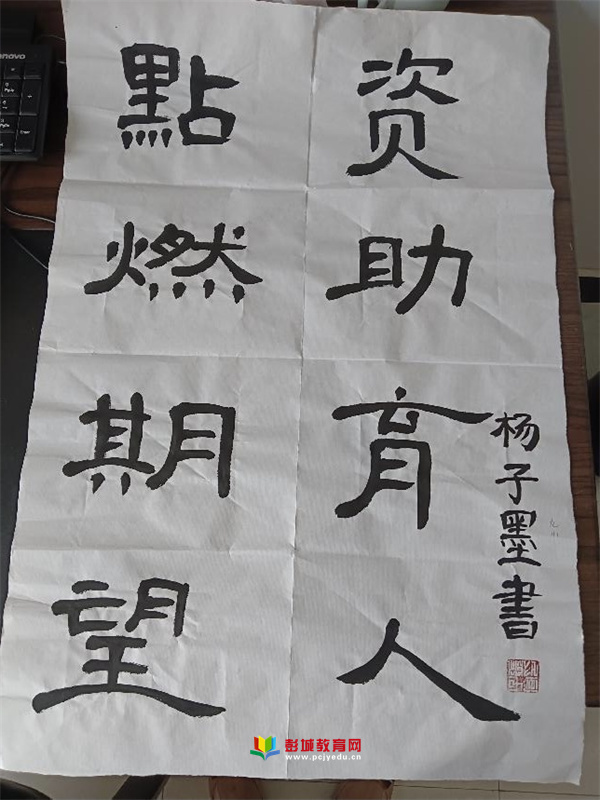 资助育人
點燃期望
杨子墨書
lenovo
彭城教育网
www.pcjyedu.cn